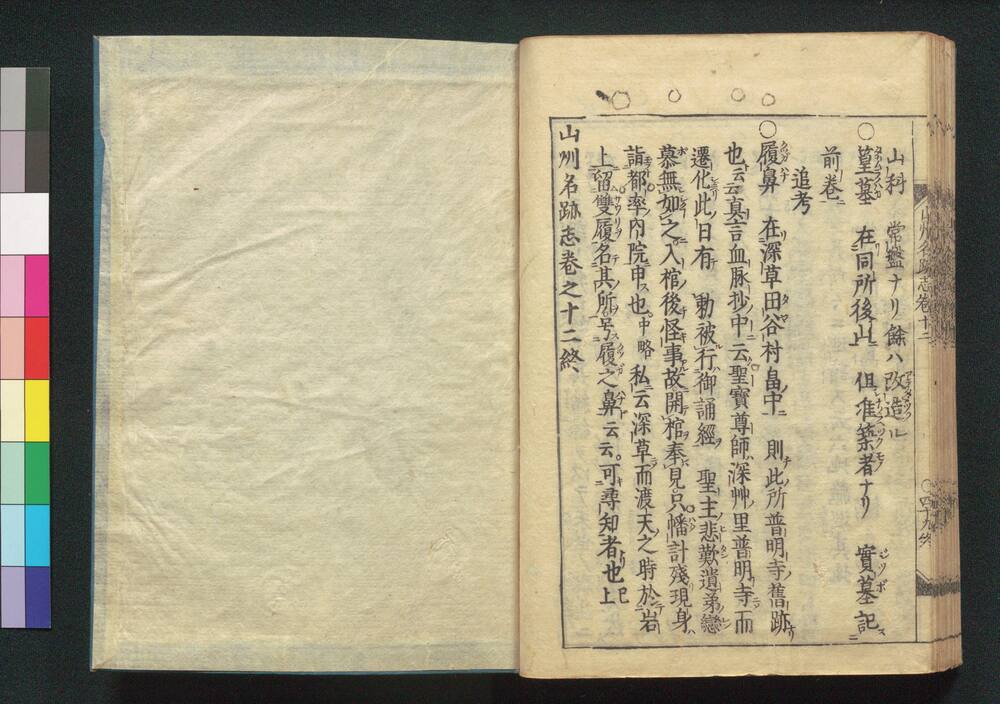 山科　常盤ナリ餘ハ改造ル
○篁墓　在同所後山　但准築者ナリ　實墓記
前卷ニ
追考
○履鼻　在深草田谷村畠中　則此所普明寺舊跡
也云云真言血脉抄中云聖寶尊師深艸里普明寺而
遷化此日有　勅被行御誦經　聖主悲歎遺弟戀
慕無如之入棺後怪事故開棺奉見只幡計殘現身
詣都率內院申也中略私云深草而渡天之時於岩
上留雙履名其所号履之鼻云云。可尋知者也已上
山州名跡志卷之十二終
山州名跡志卷十二
○四十九終